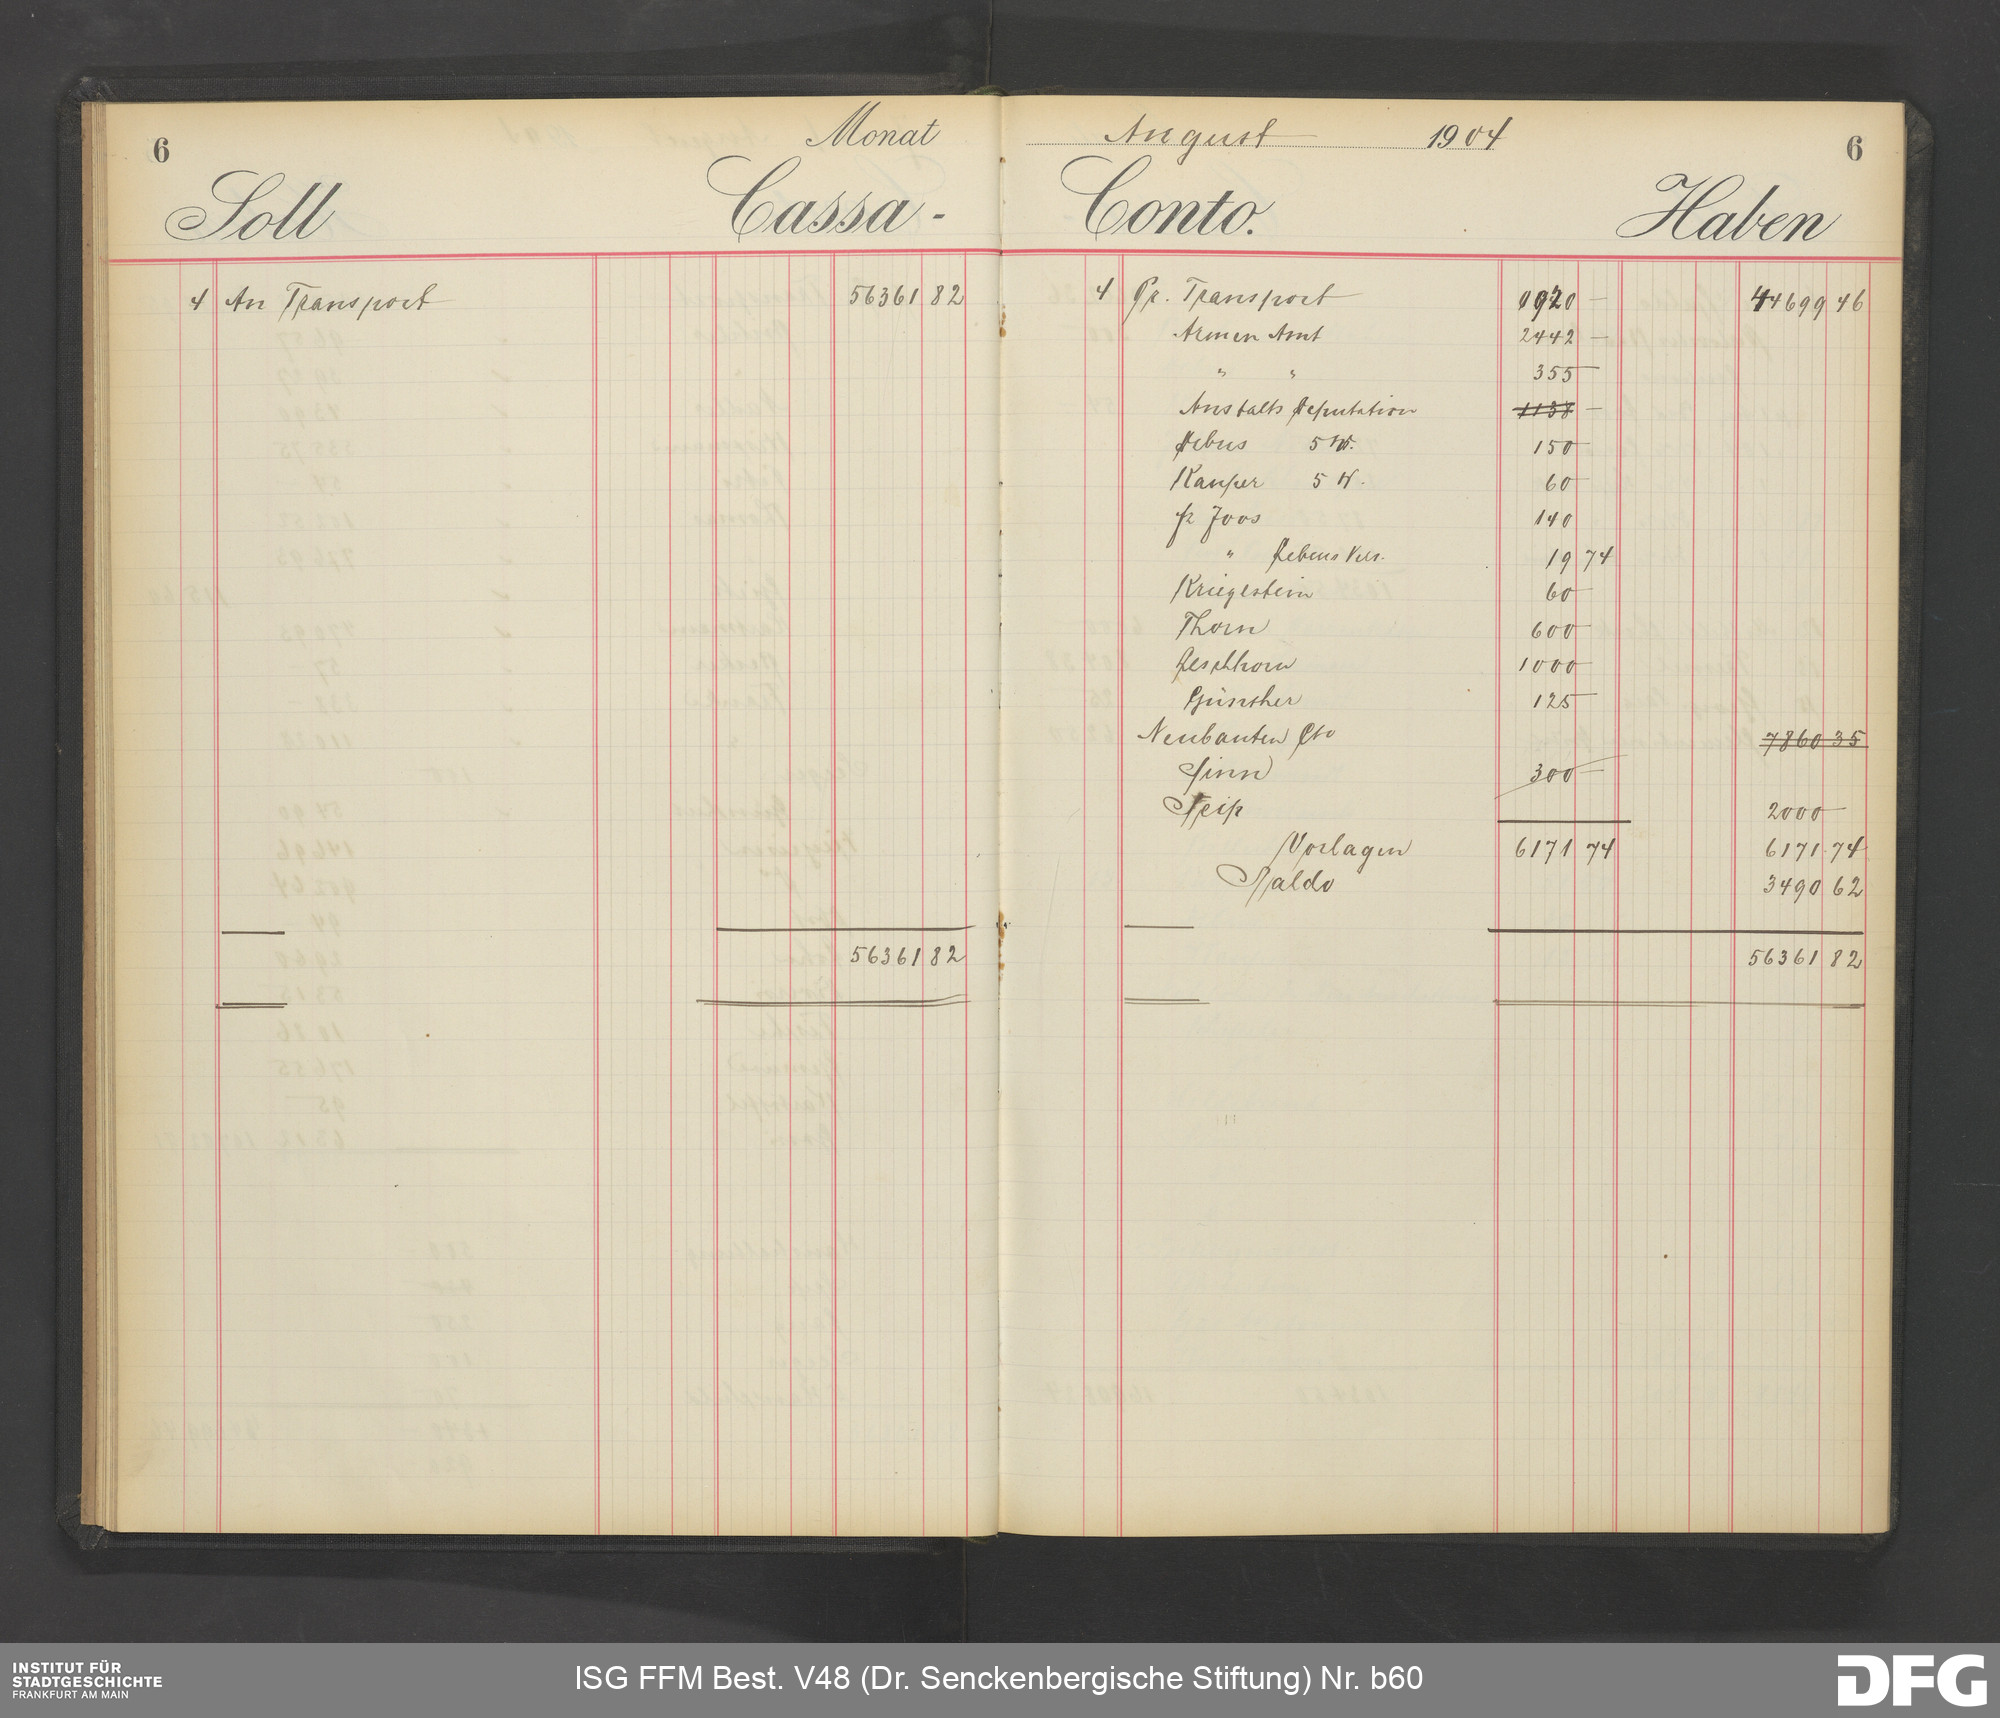 6
Monat August 1904
6
Soll Cassa-Conto. Haben
4 An Transport 56361 82
4 Pr. Transport 920 — 44699 46
Armen Amt 2442 —
" " 355 —
Anstalts Deputation 1138 —
Debus 5 N. 150 —
Kamper 5 N. 60 —
fr Joos 140
" Lebens Vers. 19 74
Kriegestein 60 —
Thorn 600 —
Leschhorn 1000 —
Günther 125 —
Neubauten Cto 7860 35
Sinn 300 —
Seip 2000 —
Vorlagen 6171 74 6171 74
Saldo 3490 62
56361 82
56361 82
INSTITUT FÜR
STADTGESCHICHTE
FRANKFURT AM MAIN
ISG FFM Best. V48 (Dr. Senckenbergische Stiftung) Nr. b60
DFG